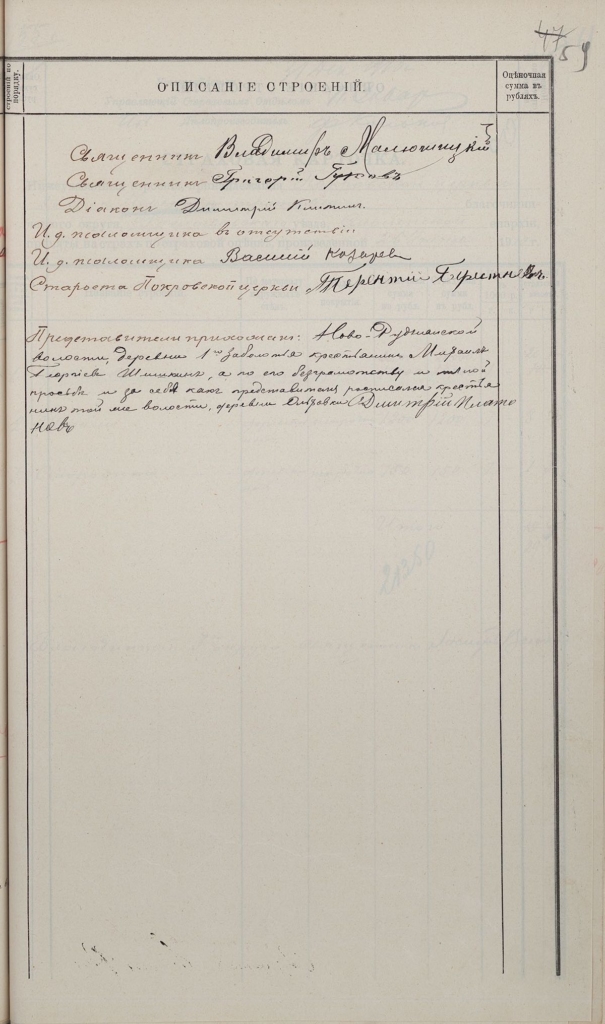 47
59
строеній по порядку.
ОПИСАНІЕ СТРОЕНІЙ.
Оцѣночная
сумма въ
рубляхъ.
Священникъ Владимиръ
Священникъ Григорій
Діаконъ Димитрій
И. д. псаломщика въ отсутствіи
И. д. псаломщика Василій
Староста Покровской церкви Терентій
Представители прихожанъ: Ново-
волости, деревни 1го крестьянинъ Михаилъ
а по его безграмотству и личной
просьбѣ и за себя какъ представитель росписался крестья
нинъ той же волости, деревни Дмитрій Плато
новъ